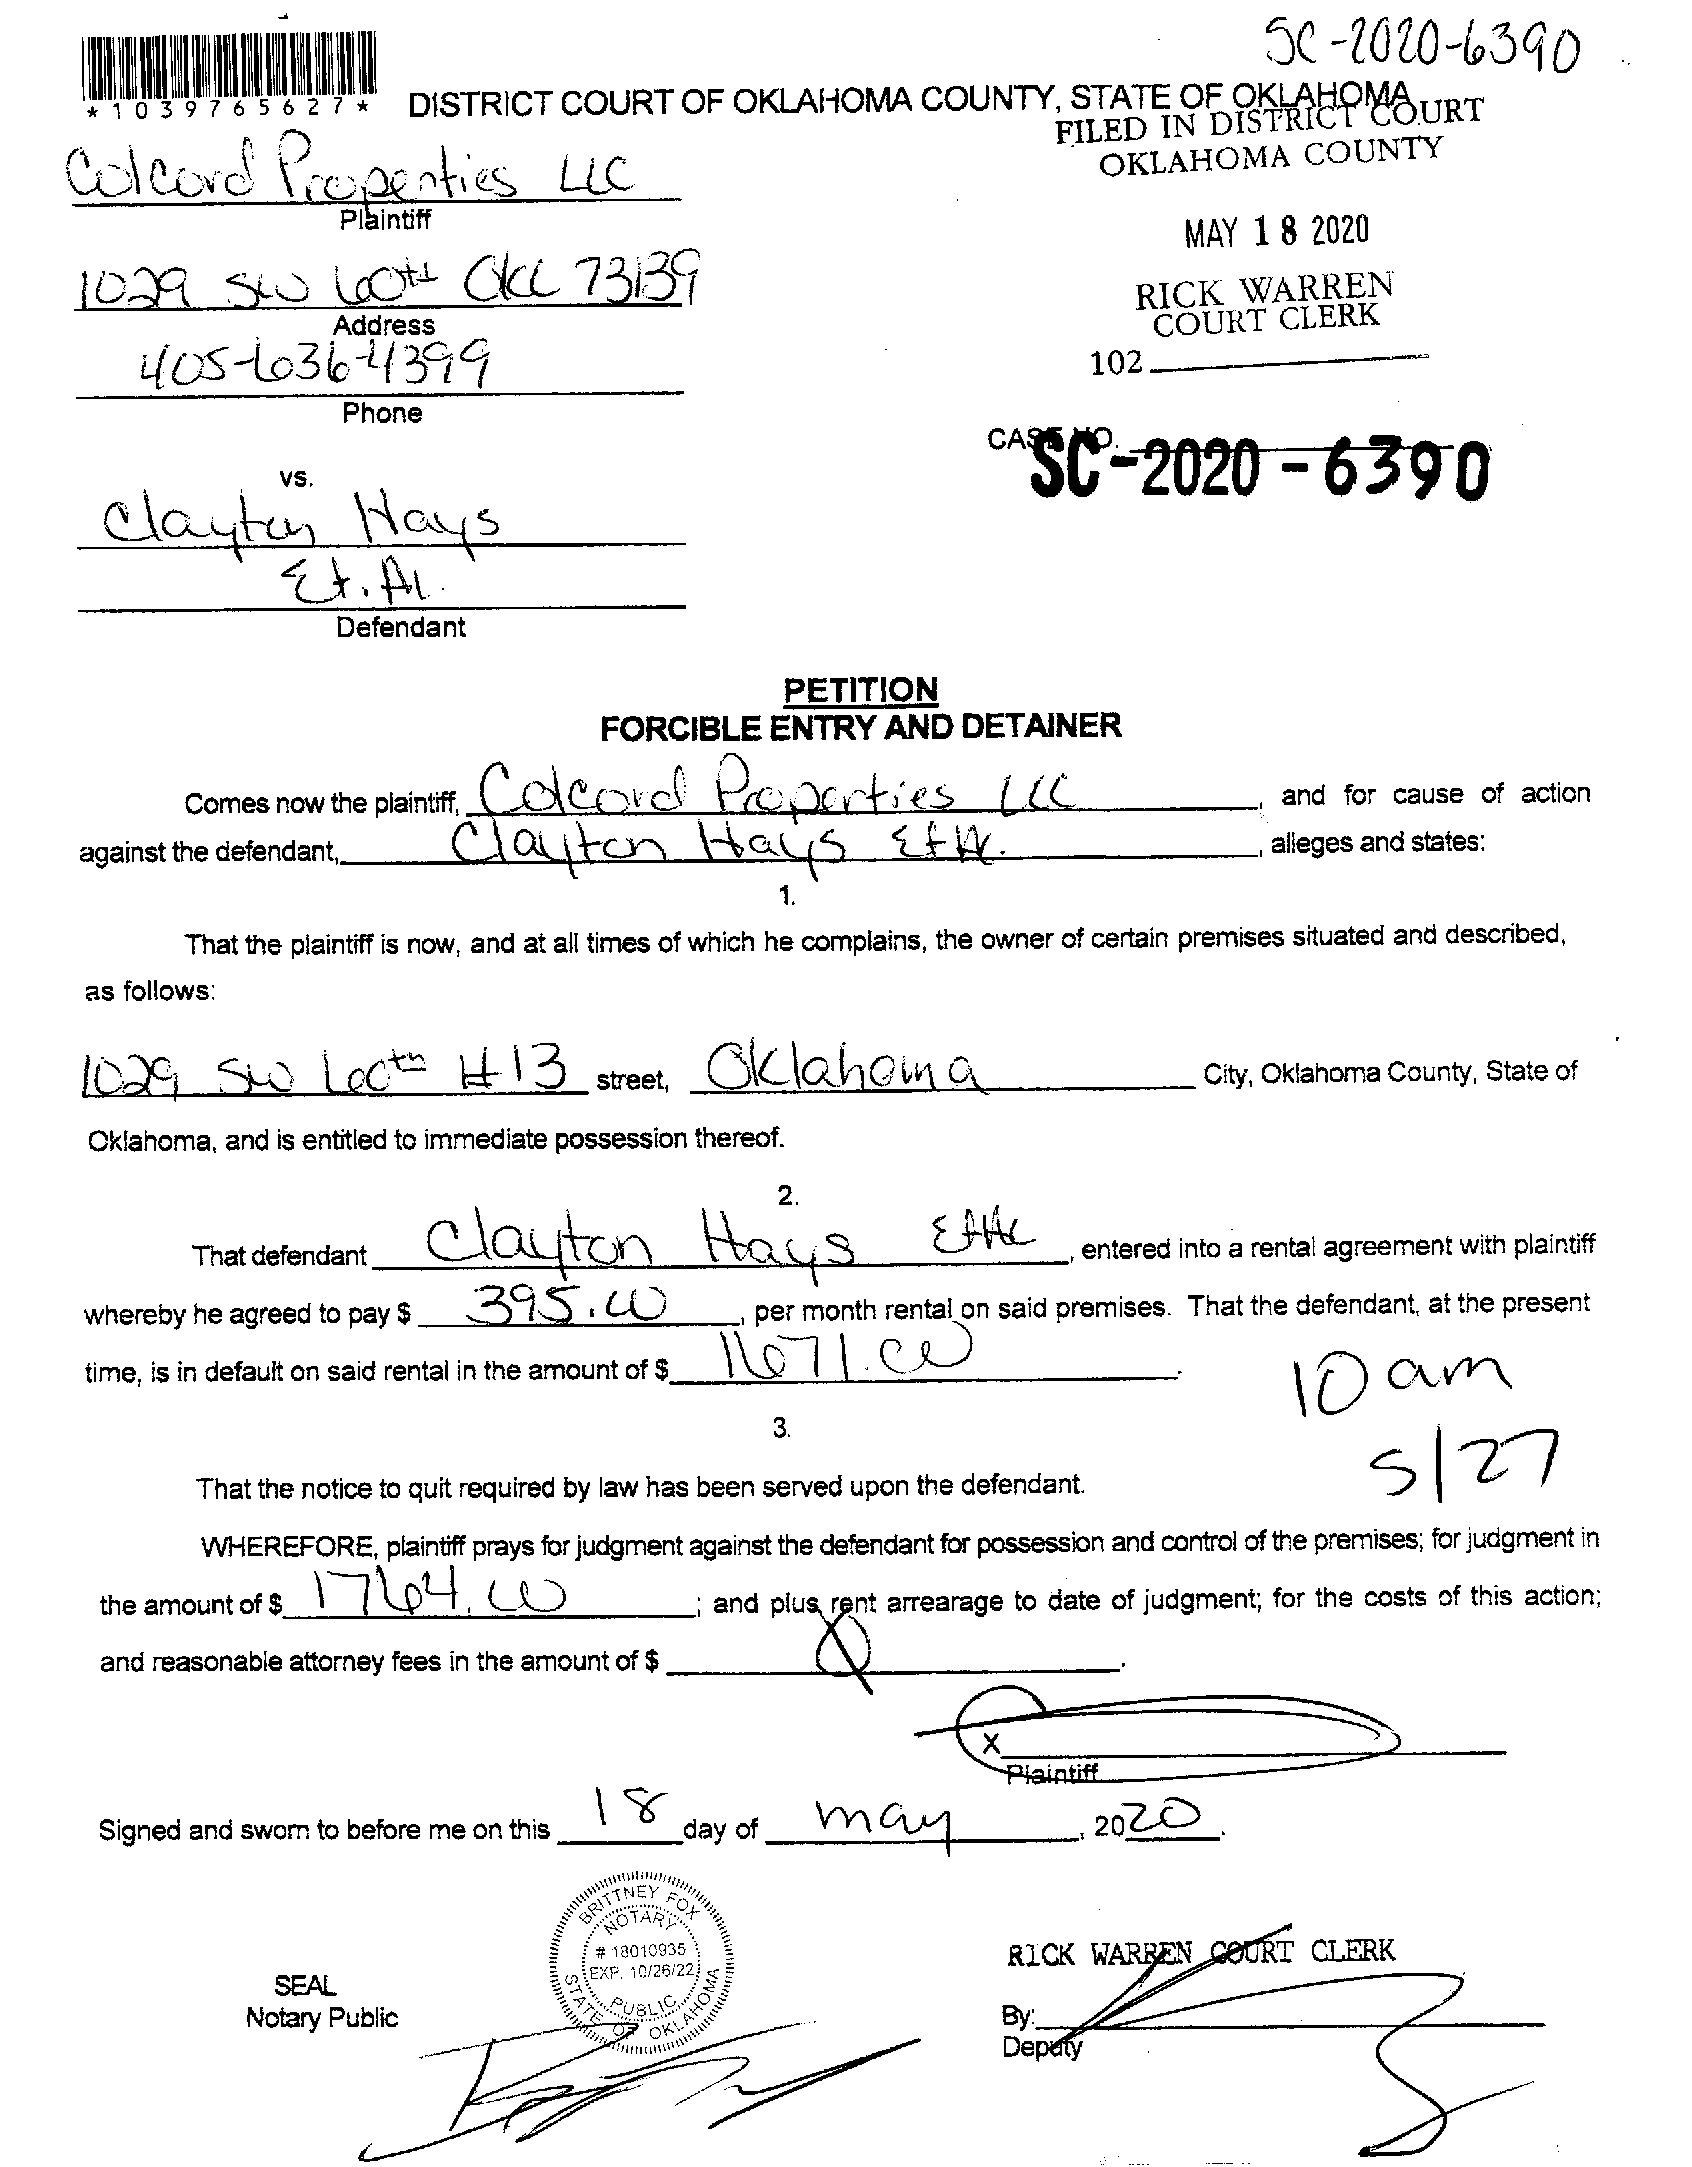 SC-2020-6390
*1039765627*
DISTRICT COURT OF OKLAHOMA COUNTY, STATE OF OKLAHOMA
FILED IN DISTRICT COURT
OKLAHOMA COUNTY
Colcord Properties LLC
Plaintiff
MAY 18 2020
1029 SW 60th OKC 73139
Address
RICK WARREN
COURT CLERK
405-636-4399
102
Phone
CASE NO.
SC-2020-6390
vs.
Clayton Hays
Et. Al.
Defendant
PETITION
FORCIBLE ENTRY AND DETAINER
Comes now the plaintiff, Colcord Properties LLC, and for cause of action
against the defendant, Clayton Hays Et Al., alleges and states:
1.
That the plaintiff is now, and at all times of which he complains, the owner of certain premises situated and described,
as follows:
1029 SW 60th #13 street, Oklahoma City, Oklahoma County, State of
Oklahoma, and is entitled to immediate possession thereof.
2.
That defendant Clayton Hays Et Al, entered into a rental agreement with plaintiff
whereby he agreed to pay $ 395.00, per month rental on said premises. That the defendant, at the present
time, is in default on said rental in the amount of $ 1671.00.
10 am
3.
5/27
That the notice to quit required by law has been served upon the defendant.
WHEREFORE, plaintiff prays for judgment against the defendant for possession and control of the premises; for judgment in
the amount of $ 1764.00; and plus rent arrearage to date of judgment; for the costs of this action;
and reasonable attorney fees in the amount of $
X
Plaintiff
Signed and sworn to before me on this 18 day of may, 2020.
BRITTNEY FOX
NOTARY
# 18010935
EXP. 10/26/22
PUBLIC
STATE OF OKLAHOMA
RICK WARREN COURT CLERK
SEAL
Notary Public
By:
Deputy